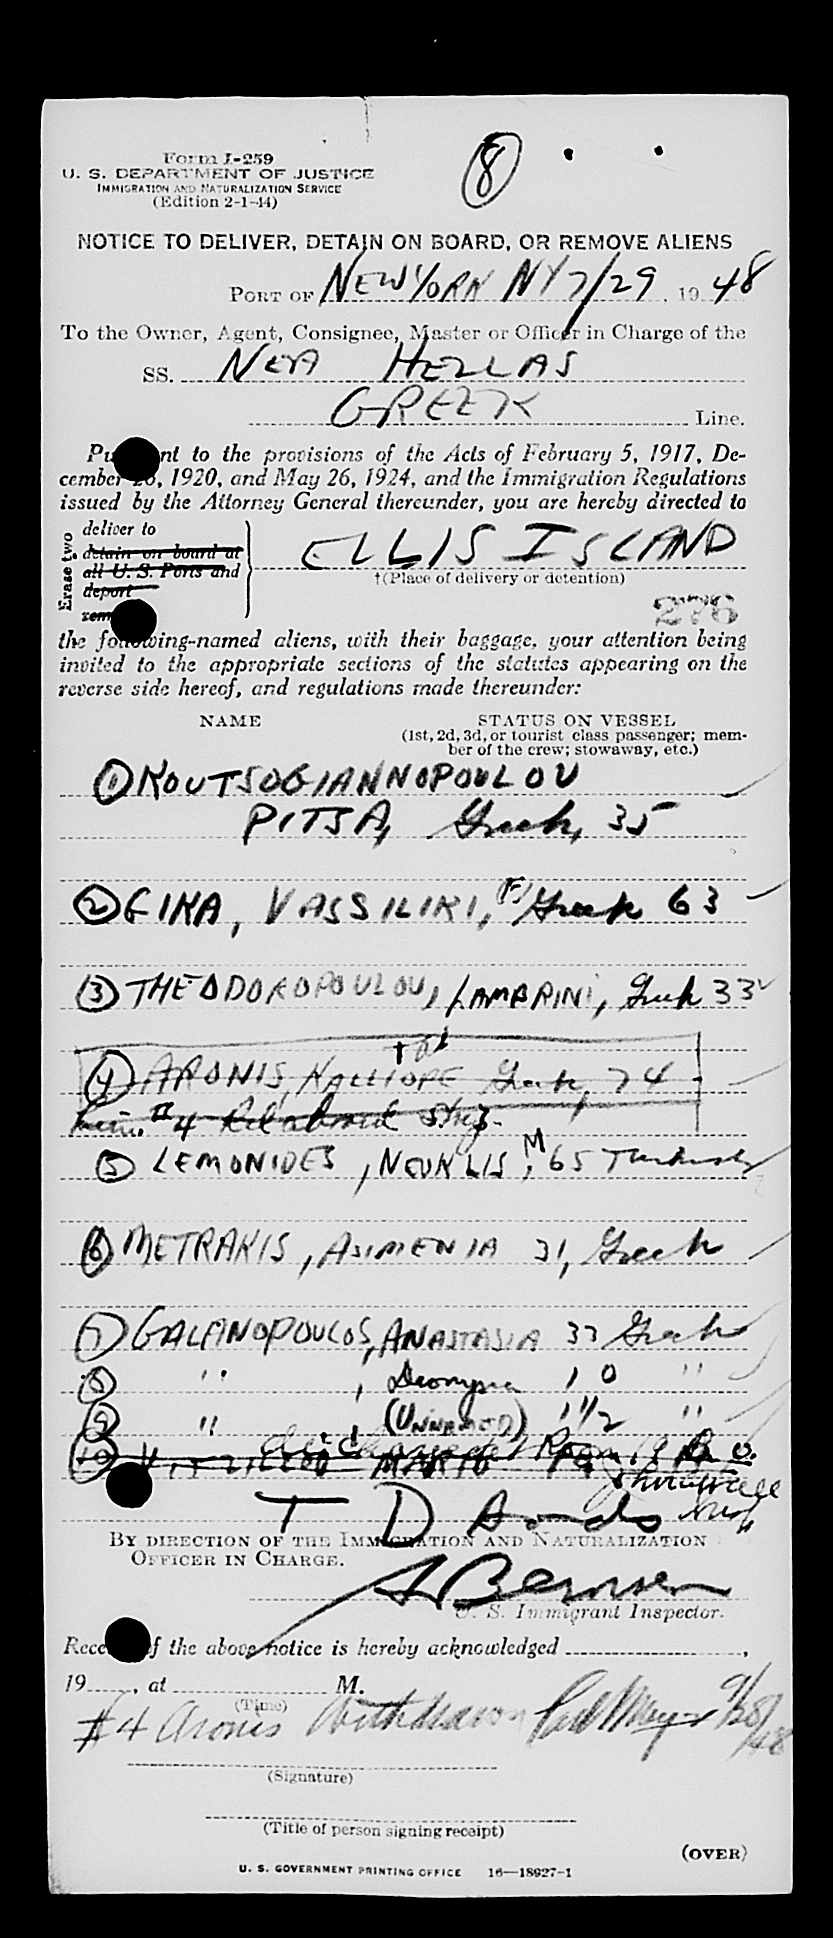 8
Form I-259
U. S. DEPARTMENT OF JUSTICE
IMMIGRATION AND NATURALIZATION SERVICE
(Edition 2-1-44)
NOTICE TO DELIVER, DETAIN ON BOARD, OR REMOVE ALIENS
PORT OF NEW YORK NY 7/29, 1948
To the Owner, Agent, Consignee, Master or Officer in Charge of the
SS. NEA HELLAS
GREEK Line.
Pu nt to the provisions of the Acts of February 5, 1917, De-
cember 26, 1920, and May 26, 1924, and the Immigration Regulations
issued by the Attorney General thereunder, you are hereby directed to
Erase two
deliver to
detain on board at
all U. S. Ports and
deport
rem
ELLIS ISLAND
†(Place of delivery or detention)
276
the following-named aliens, with their baggage, your attention being
invited to the appropriate sections of the statutes appearing on the
reverse side hereof, and regulations made thereunder:
NAME STATUS ON VESSEL
(1st, 2d, 3d, or tourist class passenger; mem-
ber of the crew; stowaway, etc.)
1 KOUTSOGIANNOPOULOU
PITSA, Greek, 35
2 GIKA, VASSILIKI, (F) Greek 63
3 THEODOROPOULOU, LAMBRINI, Greek 33
4 ARONIS, KALLIOPE Greek, 74
#4
5 LEMONIDES, NEOKLIS, M 65 Turkish
6 METRAKIS, ASIMENIA 31, Greek
7 GALANOPOULOS, ANASTASIA 33 Greek
8 " , 10 "
9 " (UNNAMED) 1 1/2 "
10
T D
BY DIRECTION OF THE IMMIGRATION AND NATURALIZATION
OFFICER IN CHARGE.
U. S. Immigrant Inspector.
Rece f the above notice is hereby acknowledged ,
19 , at M.
(Time)
#4 Aronis Withdrawn 9/28/48
(Signature)
(Title of person signing receipt)
(OVER)
U. S. GOVERNMENT PRINTING OFFICE 16—18927-1